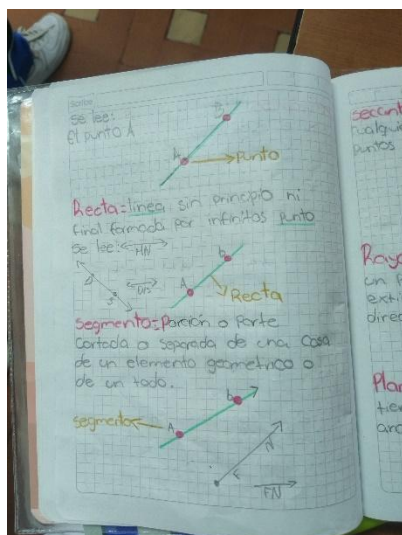 se lee:
El punto A
A
Punto
Recta = linea sin principio ni
final formada por infinitos punto
se lee: MN
A
b
Recta
segmento = Porción o Parte
Cortada o Separada de una Cosa
de un elemento geometrico o
de un todo.
b
segmento
A
F
N
FN
secant
cualqui
puntos
Rayo
un P
exti
direc
Plan
tien
anc